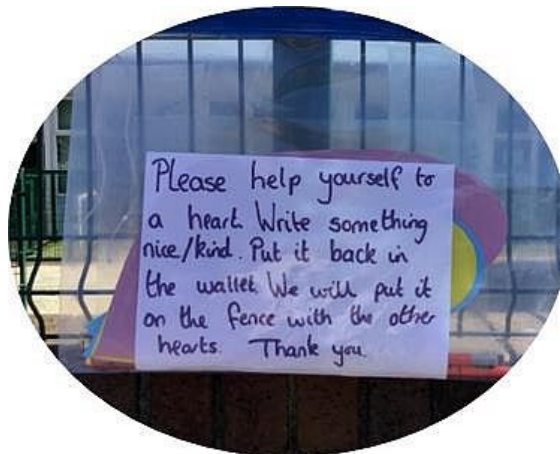 Please help yourself to
a heart. Write something
nice/kind. Put it back in
the wallet. We will put it
on the fence with the other
hearts. Thank you.